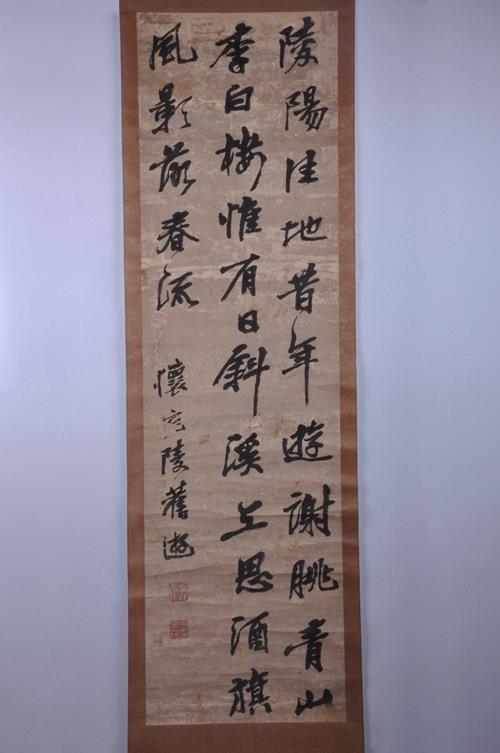 陵陽佳地昔年遊謝脁青山
李白楼惟有日斜溪上思酒旗
風影落春流
懷宛陵舊遊